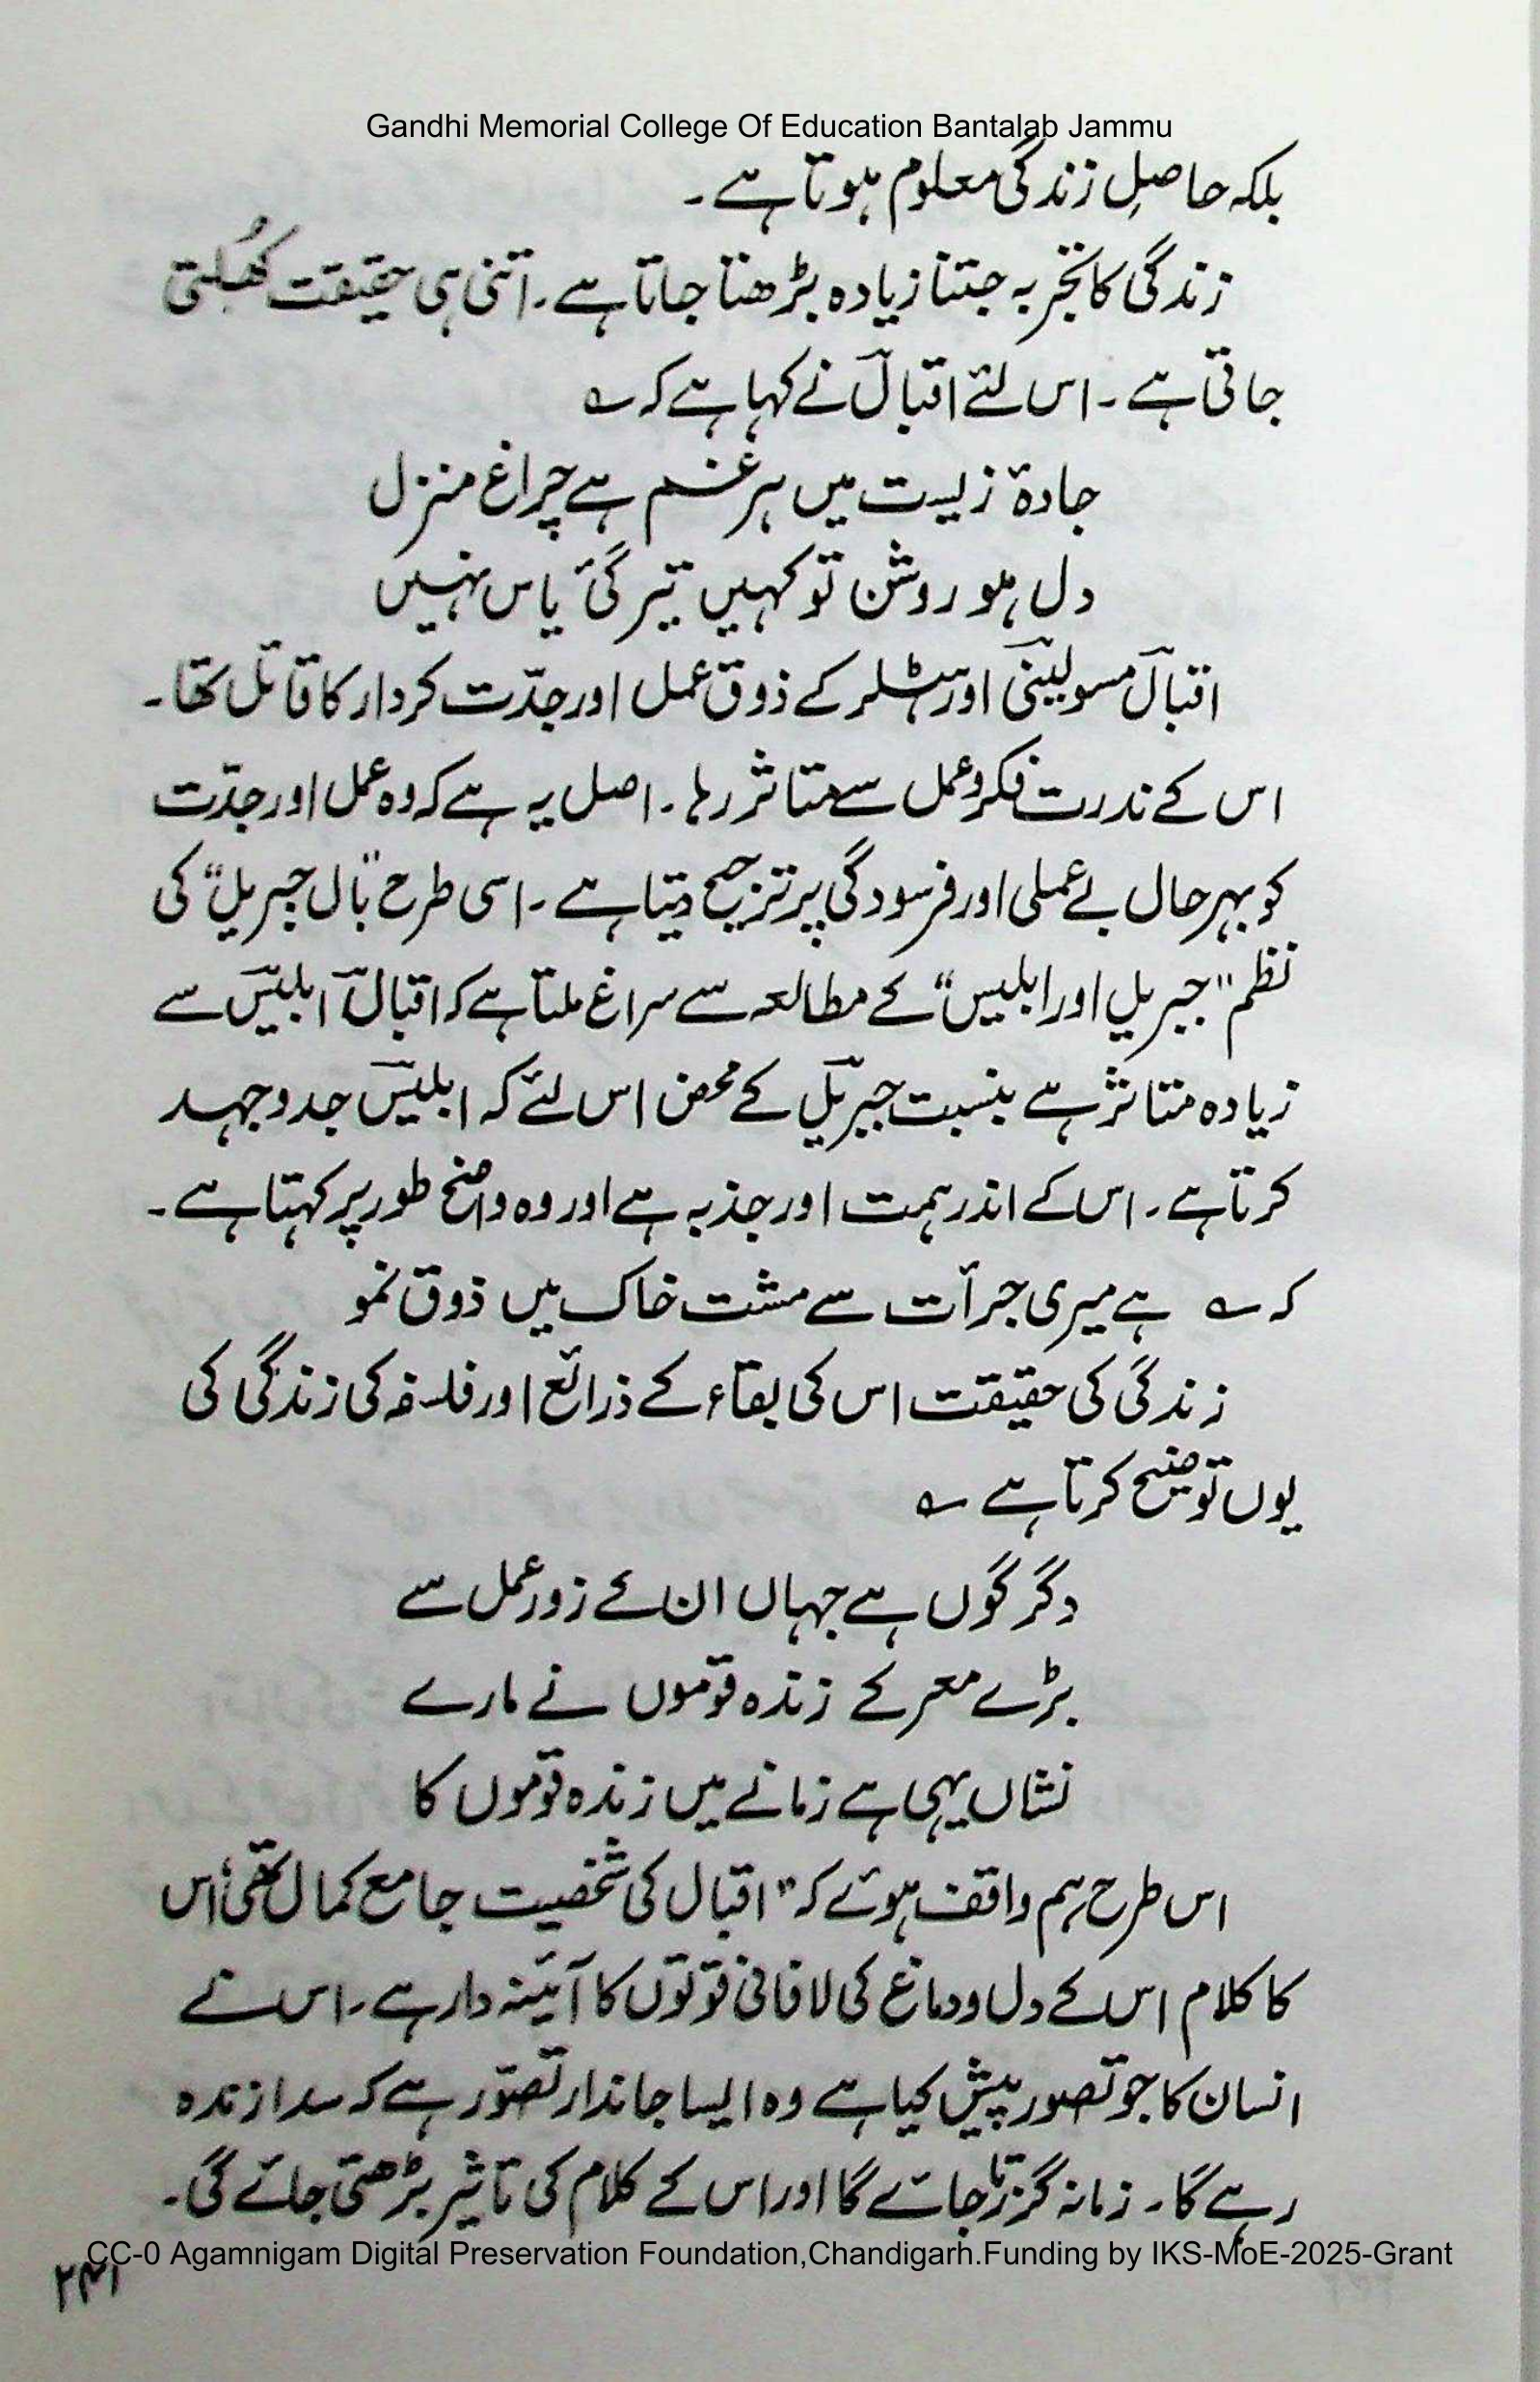 Gandhi Memorial College Of Education Bantalab Jammu
بلکہ حاصلِ زندگی معلوم ہوتا ہے۔
زندگی کا تجربہ جتنا زیادہ بڑھتا جاتا ہے۔ اتنی ہی حقیقت کھُلتی
جاتی ہے۔ اس لئے اقبالؔ نے کہا ہے کہ ؎
جادۂ زیست میں ہر غم ہے چراغ منزل
دل ہو روشن تو کہیں تیرگئ یاس نہیں
اقبالؔ مسولینیؔ اور ہٹلر کے ذوق عمل اور جدّت کردار کا قائل تھا۔
اس کے ندرت فکر و عمل سے متاثر رہا۔ اصل یہ ہے کہ وہ عمل اور جدّت
کو بہرحال بے عملی اور فرسودگی پر ترجیح دیتا ہے۔ اسی طرح "بال جبریل" کی
نظم "جبریل اور ابلیس" کے مطالعہ سے سراغ ملتا ہے کہ اقبالؔ ابلیسؔ سے
زیادہ متاثر ہے بنسبت جبریلؔ کے محض اس لئے کہ ابلیسؔ جدوجہد
کرتا ہے۔ اس کے اندر ہمت اور جذبہ ہے اور وہ واضح طور پر کہتا ہے۔
کہ ؎ ہے میری جرأت سے مشت خاک میں ذوق نمو
زندگی کی حقیقت اس کی بقاء کے ذرائع اور فلسفہ کی زندگی کی
یوں توضیح کرتا ہے ؎
دگرگوں ہے جہاں ان کے زور عمل سے
بڑے معرکے زندہ قوموں نے مارے
نشاں یہی ہے زمانے میں زندہ قوموں کا
اس طرح ہم واقف ہوئے کہ "اقبال کی شخصیت جامع کمال تھی، اس
کا کلام اس کے دل و دماغ کی لافانی قوتوں کا آئینہ دار ہے۔ اس نے
انسان کا جو تصور پیش کیا ہے وہ ایسا جاندار تصوّر ہے کہ سدا زندہ
رہے گا۔ زمانہ گزرتا جائے گا اور اس کے کلام کی تاثیر بڑھتی جائے گی۔
CC-0 Agamnigam Digital Preservation Foundation,Chandigarh.Funding by IKS-MoE-2025-Grant